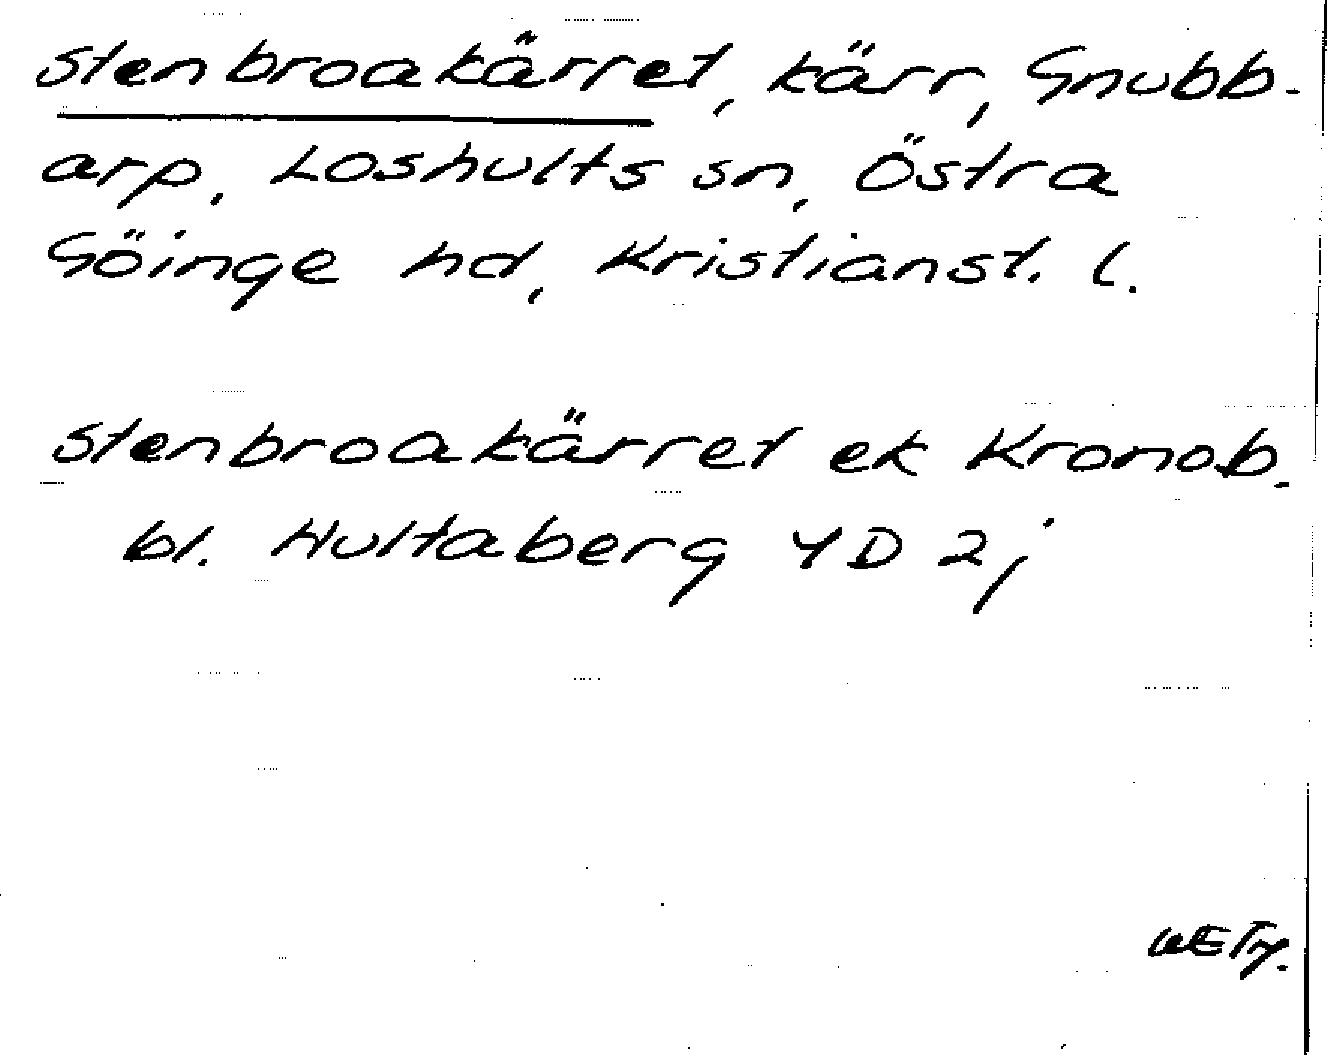 Stenbroakärret, kärr, Gnubb-
arp, Loshults sn, Östra
Göinge hd, Kristianst. l.
Stenbroakärret ek Kronob.
bl. Hultaberg 4D 2j